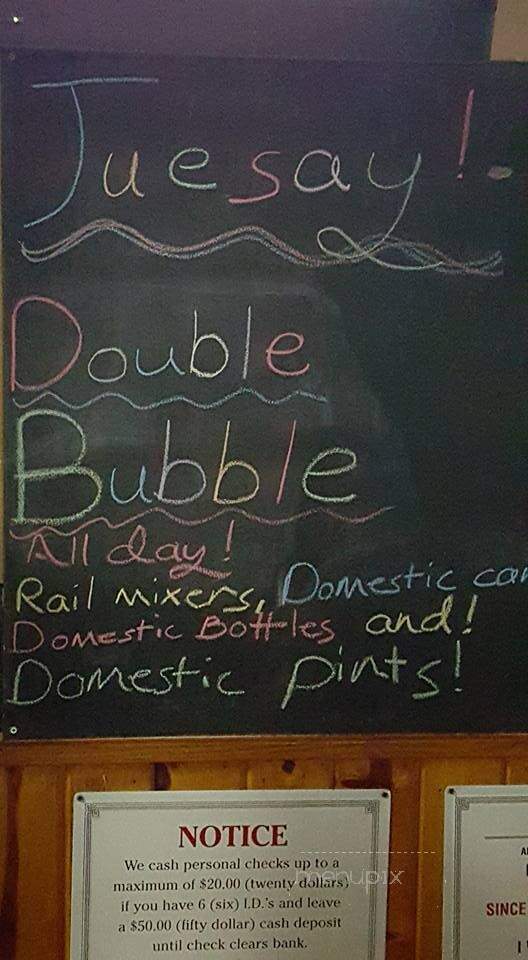 Juesay!.
Double
Bubble
All day!
Rail mixers, Domestic can
Domestic Bottles and!
Domestic pints!
NOTICE
We cash personal checks up to a
maximum of $20.00 (twenty dollars)
if you have 6 (six) I.D.'s and leave
a $50.00 (fifty dollar) cash deposit
until check clears bank.
SINCE
menupix